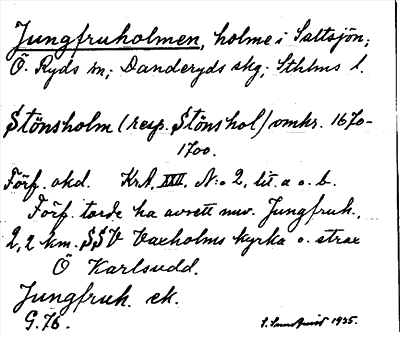 Jungfruholmen, holme i Saltsjön;
Ö. Ryds sn; Danderyds skg; Sthlms l.
Stönsholm (resp. Stönshol) omkr. 1670-
1700.
Förf. okd. KrA, XXII, N:o 2, lit. a o. b.
Förf. torde ha avsett nuv. Jungfruh.,
2,2 km. SSV Vaxholms kyrka o. strax
Ö Karlsudd.
Jungfruh. ek.
G. 76.
1935.